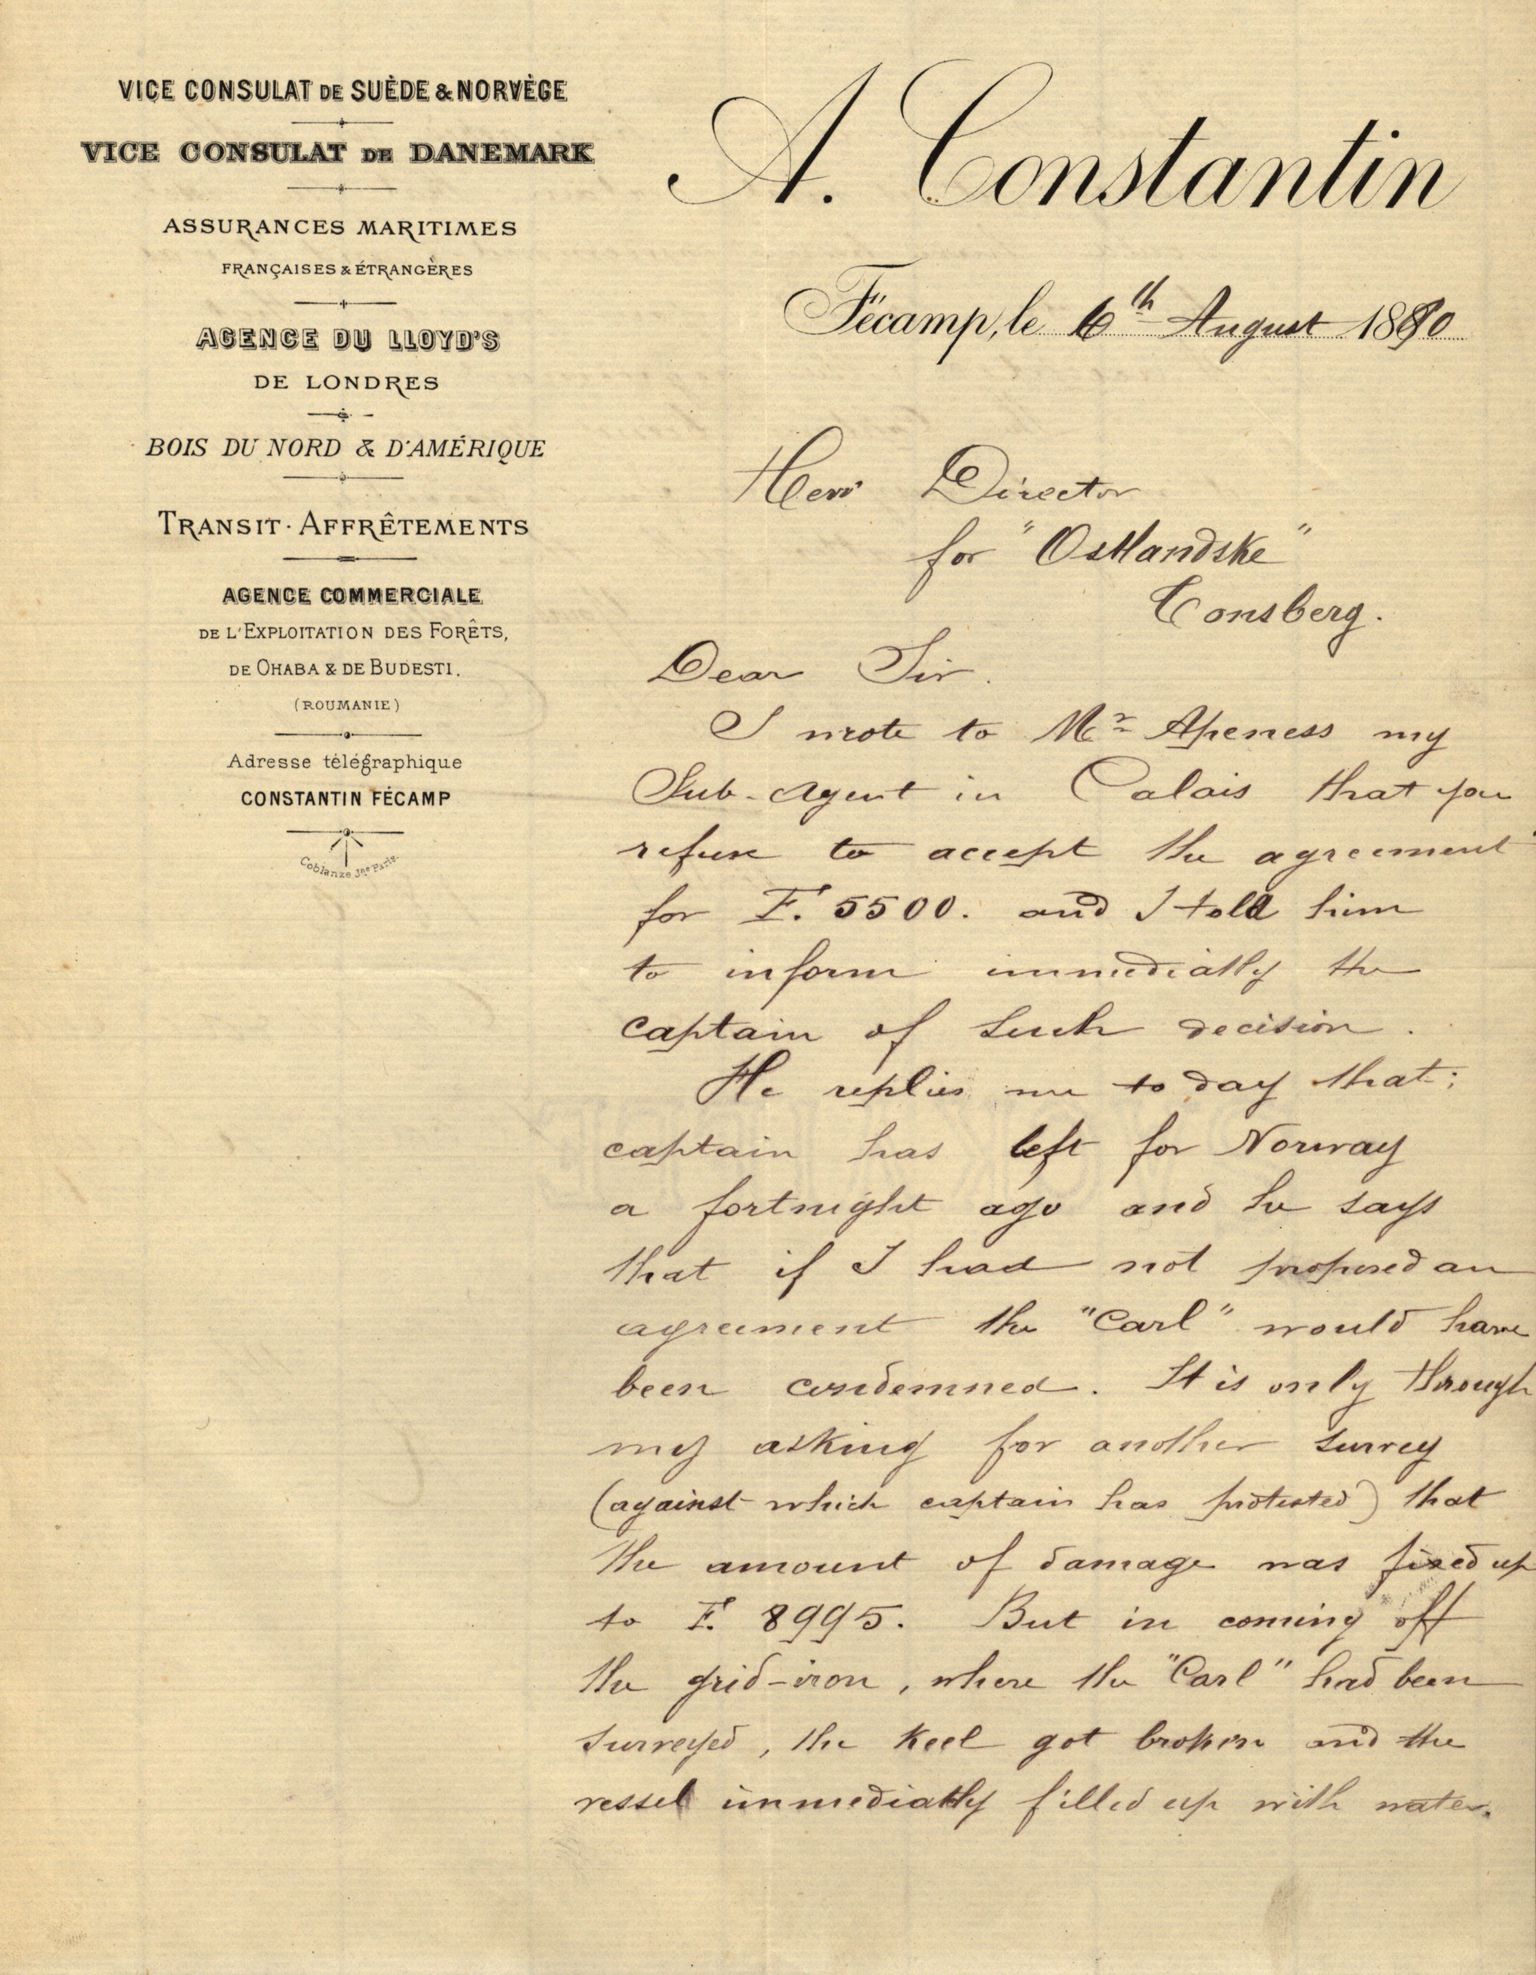 VICE CONSULAT DE SUÈDE & NORVÈGE
VICE CONSULAT DE DANEMARK
ASSURANCES MARITIMES
FRANÇAISES & ÉTRANGÈRES
AGENCE DU LLOYD'S
DE LONDRES
BOIS DU NORD & D'AMÉRIQUE
TRANSIT · AFFRÊTEMENTS
AGENCE COMMERCIALE
DE L'EXPLOITATION DES FORÊTS,
DE OHABA & DE BUDESTI.
(ROUMANIE)
Adresse télégraphique
CONSTANTIN FÉCAMP
Coblanze Jne Paris.
A. Constantin
Fécamp, le 6th August 1890
Herr Director
for "Ostlandske"
Tonsberg.
Dear Sir.
I wrote to Mr Apeness my
Sub-Agent in Calais that you
refuse to accept the agreement
for F. 5500. and I told him
to inform immediatly the
captain of such decision.
He replies me to day that;
captain has left for Norway
a fortnight ago and he says
that if I had not proposed an
agreement the "Carl" would have
been condemned. It is only through
my asking for another survey
(against which captain has protested) that
the amount of damage was fixed up
to F. 8995. But in coming off
the grid-iron, where the "Carl" had been
surveyed, the keel got broken and the
vessel immediatly filled up with water.